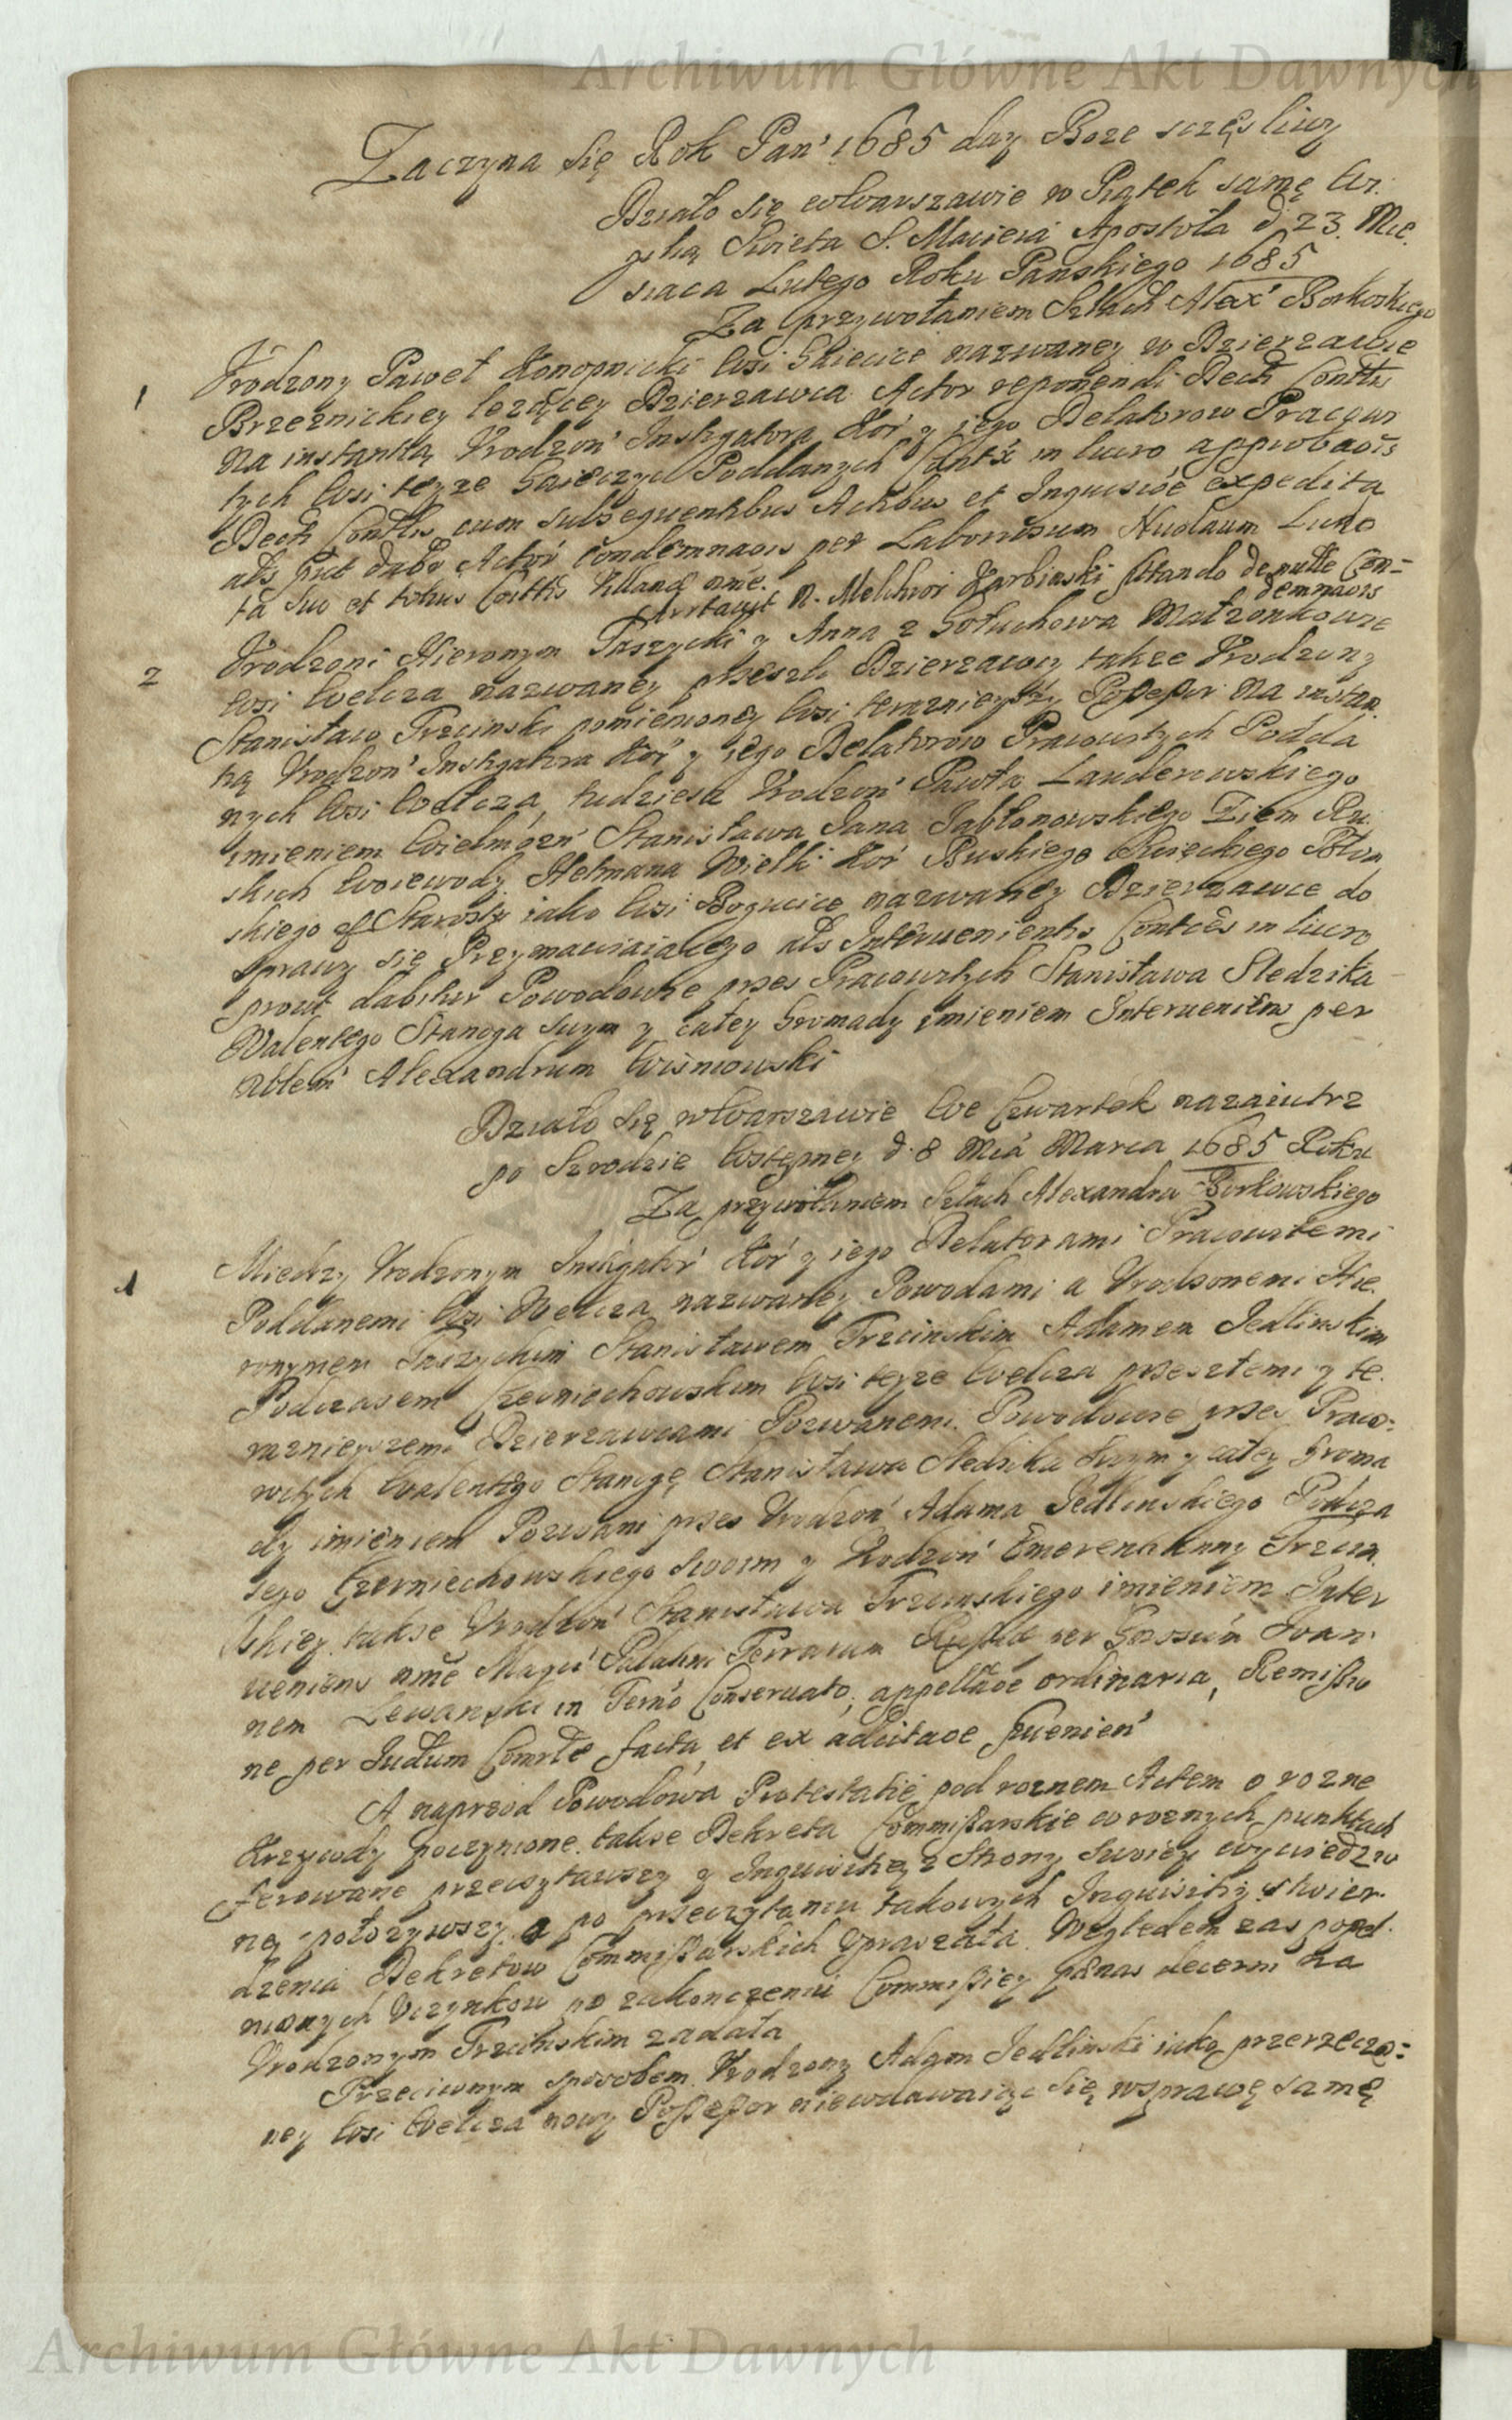 Archiwum Główne Akt Dawnych
Zaczyna się Rok Pan' 1685 day Boze sczęsliwy
Działo się wWarszawie w Piątek samę Wi:
gilią Swięta S. Macieia Apostoła d. 23. Mie.
siaca Lutego Roku Panskiego 1685
Za przywołaniem Szlach Alex' Borkoskiego
1 Urodzony Paweł Konopnicki Wsi nazwaney w Dzierzawie
Brzeznickiey lezącey Dzierzawca Actor reponendi Decti Conttis
Na instantią Urodzon' Instigatora Kor' y iego Delatorow Pracowi
tych Wsi teyze Poddanych in lucro approbaois
Decti Conttis cum subsequentibus Actibus et expedita
als Actor' condemnaois per Laboriosum Nicolaum
ta suo et totius
N. Melchior Stando de nulle Con=
demnaois
2 Urodzeni Hieronym Taszycki y Anna z Gołuchowa Małzonkowie
Wsi Welcza nazwaney przeszli Dzierzawcy takze Urodzony
Stanisław Trzcinski pomienioney Wsi teraznieyszy Possessor Na instan
tią Urodzon' Instigatora Kor' y iego Delatorow Pracowitych Podda
nych Wsi Welcza, tudziesz Urodzon' Pawła
imieniem Wielmozn' Stanisława Jana Jabłonowskiego Ziem Ru.
skich Woiewody. Hetmana Wielk: Kor' Buskiego
skiego et Starosty iako Wsi Bogucice nazwaney Dzierzawce do
sprawy się Przymawiaiącego als Interuenientis in lucro
prout dabitur Powodowie przes Pracowitych Stanisława Sledzika
Walentego Stanoga swym y całey Gromady imieniem Interueniens per
Alexandrum Wisniowski
Działo się wWarszawie We Czwartek nazaiutrz
po Szrodzie Wstępney d. 8 Mia' Marca 1685 Roku
Za przywołaniem Szlach Alexandra Borkowskiego
1 Miedzy Urodzonym Instigator' Kor' y iego Delatorami Pracowitemi
Poddanemi Wsi Welcza nazwaney Powodami a Urodzonemi Hie.
ronymem Taszyckim Stanisławem Trzcinskim Adamem Jedlinskim
Podczasem Czerniechowskim Wsi teyze Welcza przeszłemi y te.
raznieyszemi Dzierzawcami Pozwanemi. Powodowie przes Praco:
witych Walentego Stanogę Stanisława Sledzika swym y całey Groma
dy imieniem Pozwani przes Urodzon' Adama Jedlinskiego Podcza
sego Czerniechowskiego swoim y Urodzon' Trzcin.
skiey takze Urodzon' Stanisława Trzcinskiego imieniem Inter
ueniens nme Palatini Terrarum Russiæ per Joan.
nem in Termo Conseruato, appellaoe ordinaria, Remissio
ne per Judium facta et ex
A naprzod Powodowa Protestatie pod roznem Actem o rozne
Krzywdy poczynione. takze Dekreta Commissarskie w roznych punktach
ferowane przeczytawszy y Inquisitiey z Strony swoiey wywiedzio
ney połozywszy, a po przeczytaniu takowych Inquisitiy stwier.
dzenia Dekretow Commissarskich Upraszała. Względem zas popeł.
nionych Uczynkow po zakonczeniu Commissiey pænas decerni na
Urodzonym Trzcinskim zadała
Przeciwnym sposobem. Urodzony Adam Jedlinski iako przerzeczo:
ney Wsi Welcza nowy Possessor niewdawaiąc się wsprawę samę
Archiwum Główne Akt Dawnych